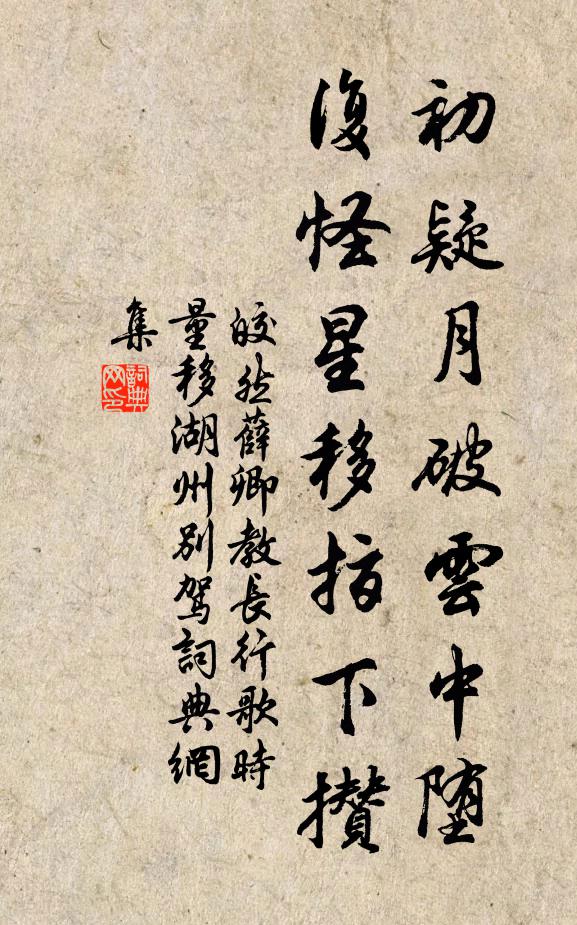 初疑月破雲中墮
復怪星移指下攢
皎然薛卿教長行歌時
量移湖州別駕詞典網
集
詞典
网印